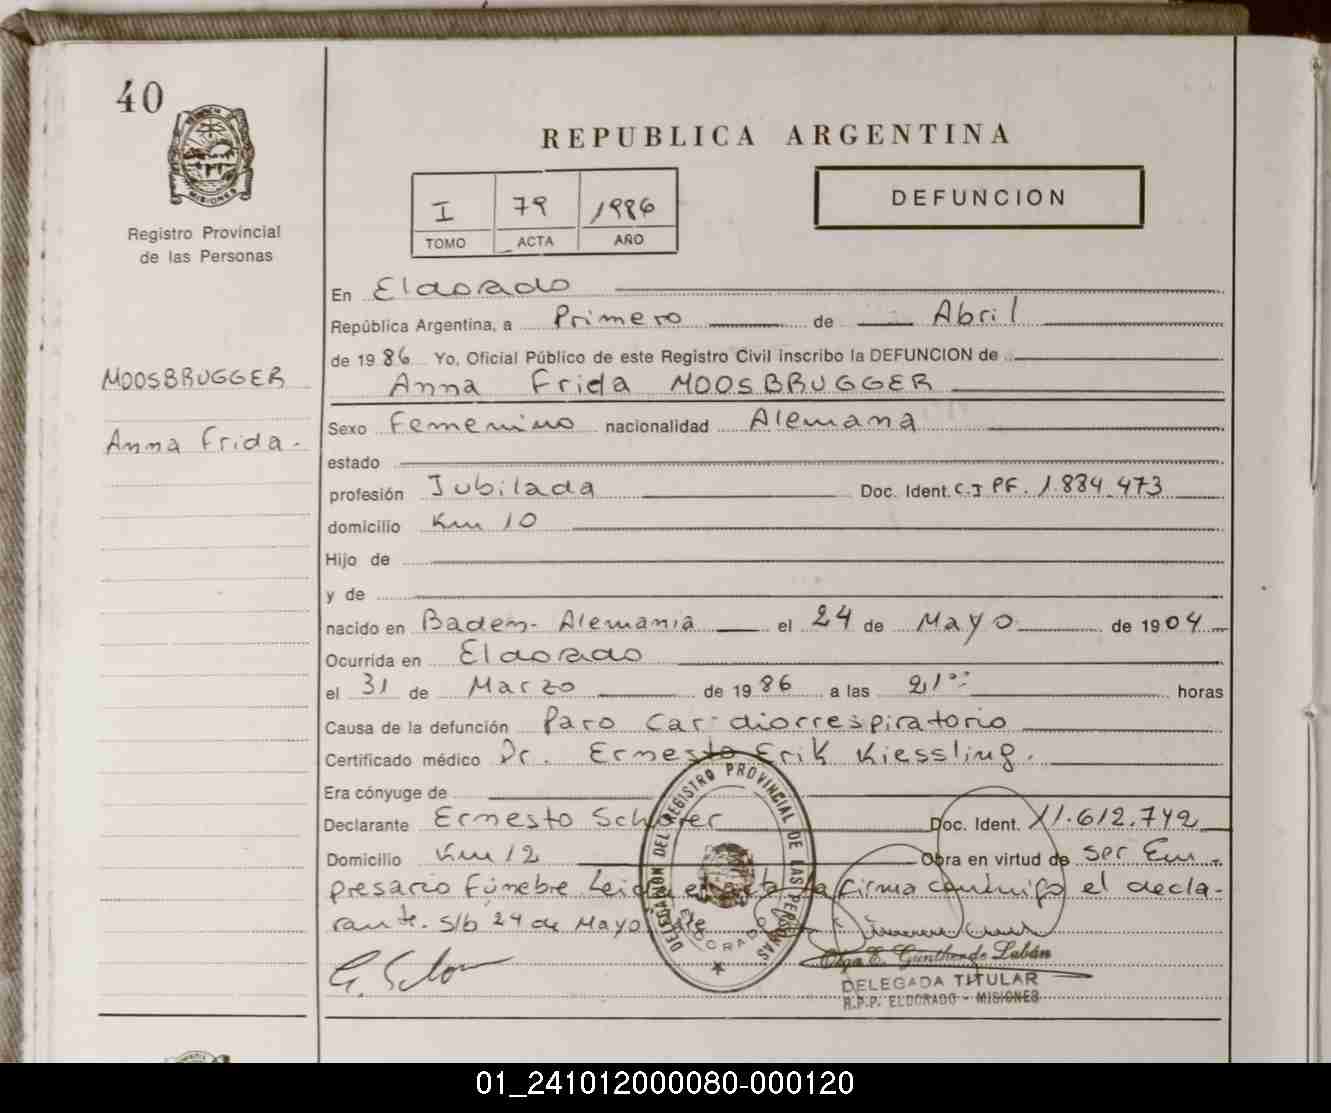 40
PROVINCIA DE
MISIONES
Registro Provincial
de las Personas
MOOSBRUGGER
Anna Frida.
REPUBLICA ARGENTINA
I 79 1986
TOMO ACTA AÑO
DEFUNCION
En Eldorado
República Argentina, a Primero de Abril
de 1986 Yo, Oficial Público de este Registro Civil inscribo la DEFUNCION de
Anna Frida MOOSBRUGGER
Sexo Femenino nacionalidad Alemana
estado
profesión Jubilada Doc. Ident. C.I PF. 1.884.473
domicilio Km 10
Hijo de
y de
nacido en Baden- Alemania el 24 de Mayo de 1904
Ocurrida en Eldorado
el 31 de Marzo de 1986 a las 21°° horas
Causa de la defunción Paro Cardiorrespiratorio
Certificado médico Dr. Ernesto Erik Kiessling.
Era cónyuge de
Declarante Ernesto Schäfer Doc. Ident. 11.612.742
Domicilio Km 12 Obra en virtud de ser Em
presario Fúnebre Leida el acta la firma conmigo el decla-
rante. s/b 24 de Mayo. Vale
DELEGACION DEL REGISTRO PROVINCIAL DE LAS PERSONAS
ELDORADO
Olga E. Günther de Labán
DELEGADA TITULAR
R.P.P. ELDORADO - MISIONES
01_241012000080-000120